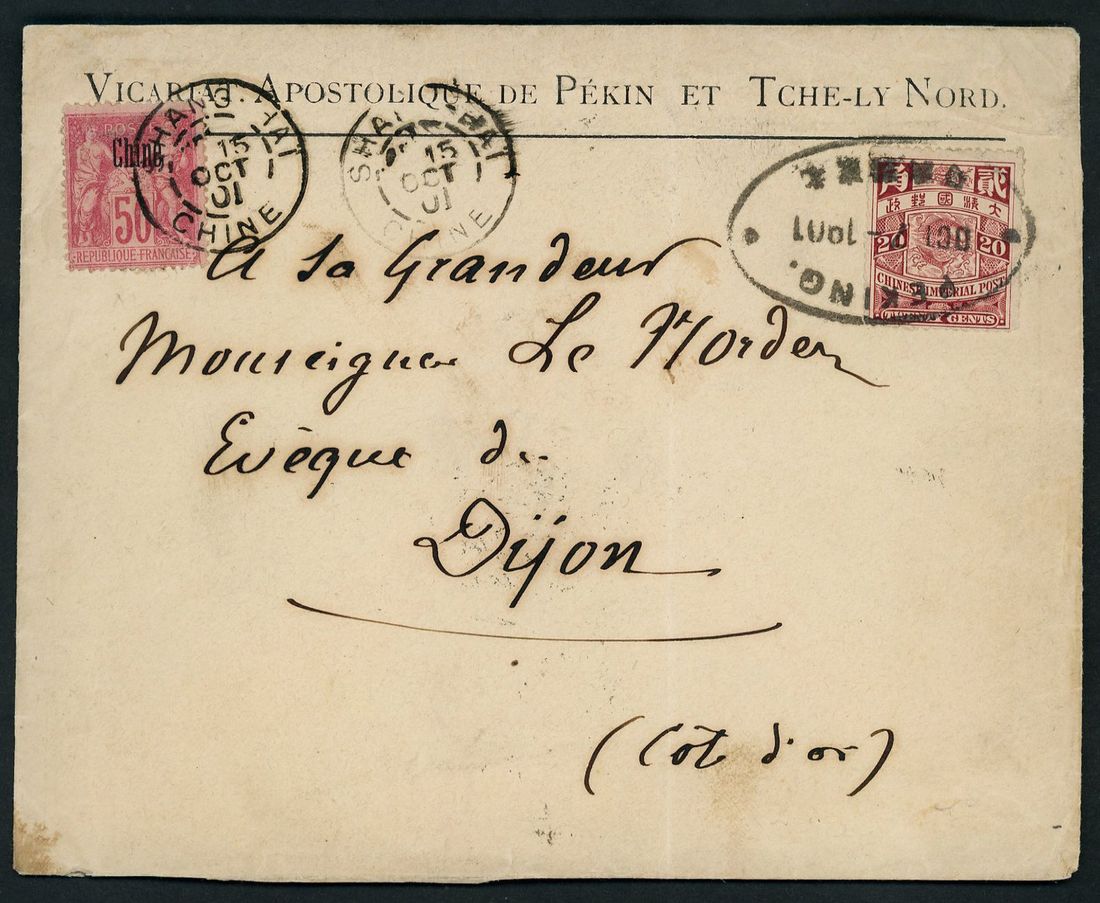 VICARIAT APOSTOLIQUE DE PÉKIN ET TCHE-LY NORD.
Chine
50
REPUBLIQUE FRANÇAISE
SHANG-HAI
15
OCT
01
CHINE
SHANG-HAI
15
OCT
01
CHINE
PEKING.
OCT 7 - 1901
角 貳
政郵國清大
20 20
CHINESE IMPERIAL POST
CENTS
A Sa Grandeur
Monseigneur Le Nordez
Evèque de
Dijon
(Côt d'or)